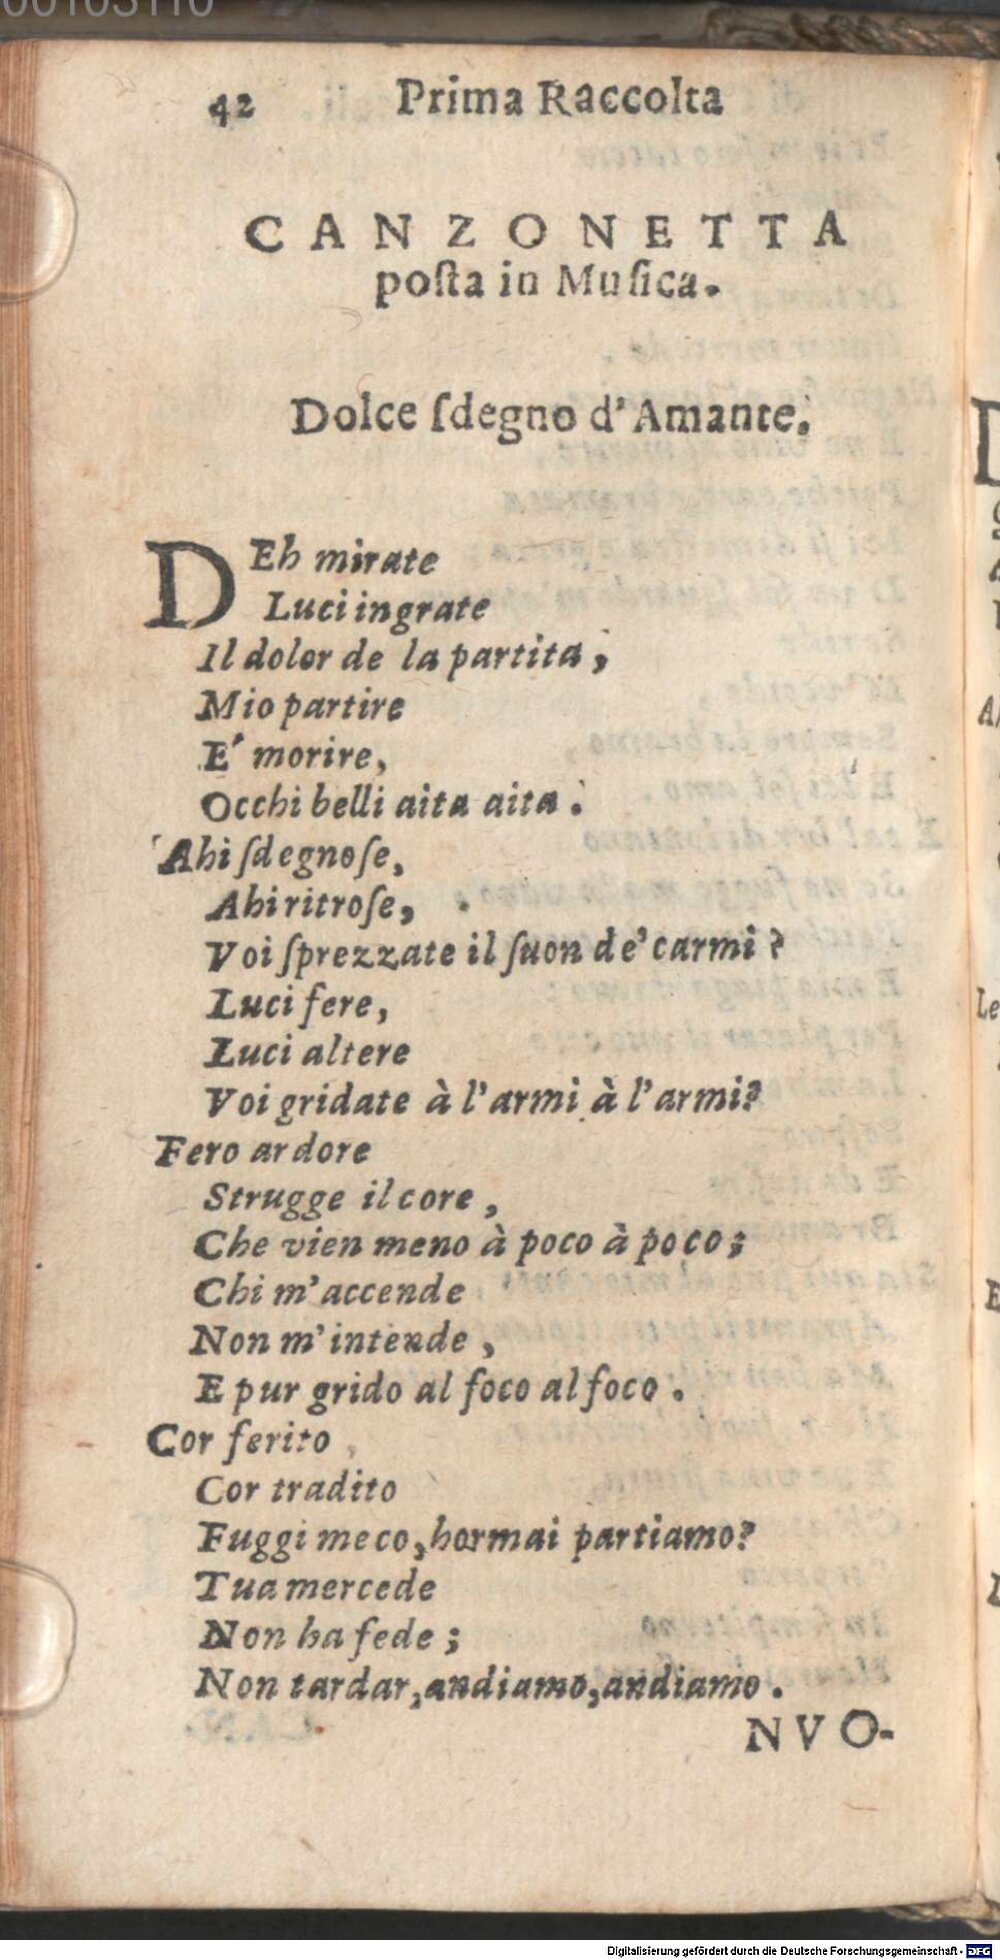 42 Prima Raccolta
CANZONETTA
poſta in Muſica.
Dolce ſdegno d'Amante.
DEh mirate
Luci ingrate
Il dolor de la partita,
Mio partire
E' morire,
Occhi belli aita aita.
Ahi ſdegnoſe,
Ahi ritroſe,
Voi ſprezzate il ſuon de' carmi?
Luci fere,
Luci altere
Voi gridate à l'armi à l'armi?
Fero ardore
Strugge il core,
Che vien meno à poco à poco;
Chi m'accende
Non m'intende,
E pur grido al foco al foco.
Cor ferito,
Cor tradito
Fuggi meco, hormai partiamo?
Tua mercede
Non ha fede;
Non tardar, andiamo, andiamo.
NVO-
Digitalisierung gefördert durch die Deutsche Forschungsgemeinschaft - DFG